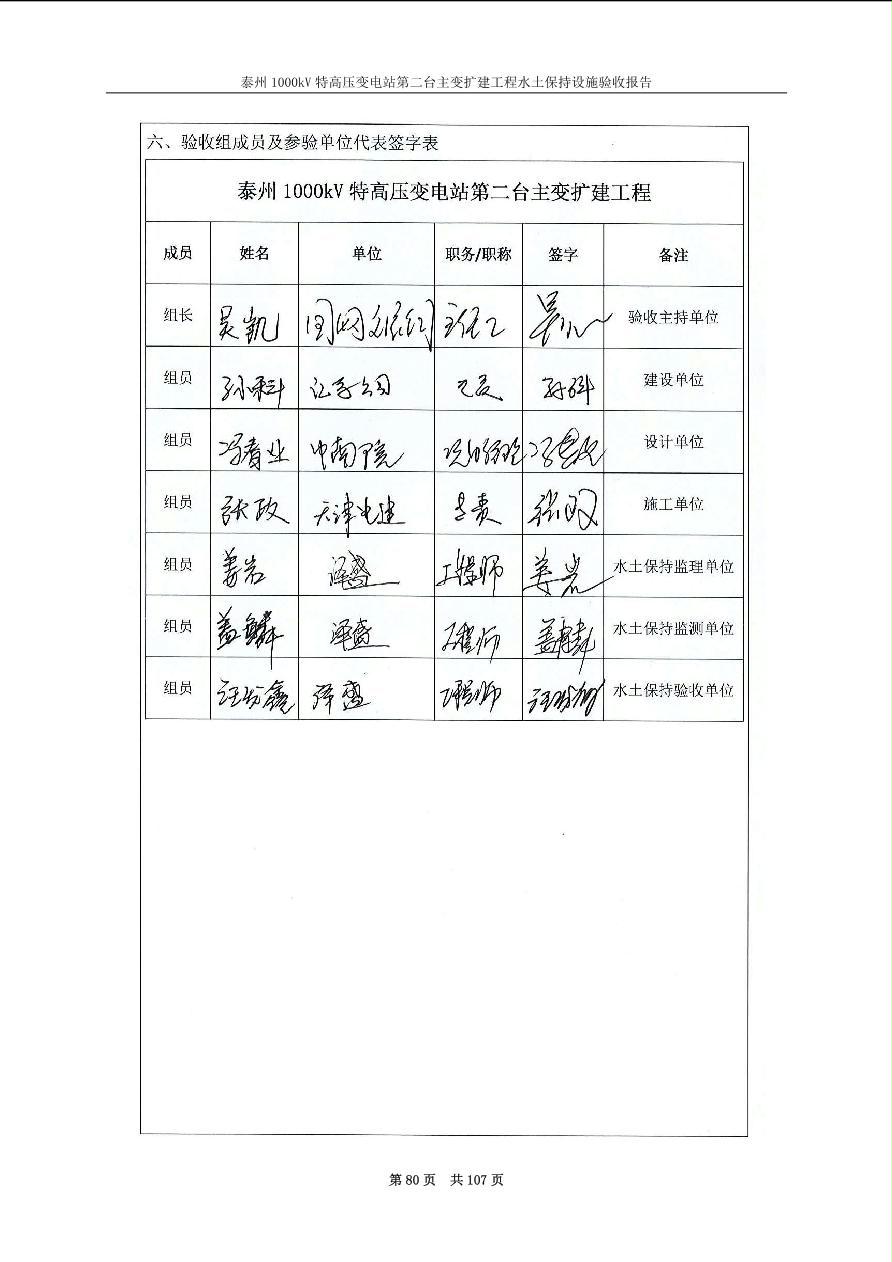 泰州 1000kV 特高压变电站第二台主变扩建工程水土保持设施验收报告
六、验收组成员及参验单位代表签字表
泰州 1000kV 特高压变电站第二台主变扩建工程
成员 姓名 单位 职务/职称 签字 备注
组长 吴凯 国网 验收主持单位
组员 孙科 公司 孙科 建设单位
组员 冯春业 中南院 设计单位
组员 张政 天津电建 张政 施工单位
组员 姜岩 泽盛 工程师 姜岩 水土保持监理单位
组员 盖 泽盛 工程师 盖 水土保持监测单位
组员 泽盛 工程师 水土保持验收单位
第 80 页 共 107 页